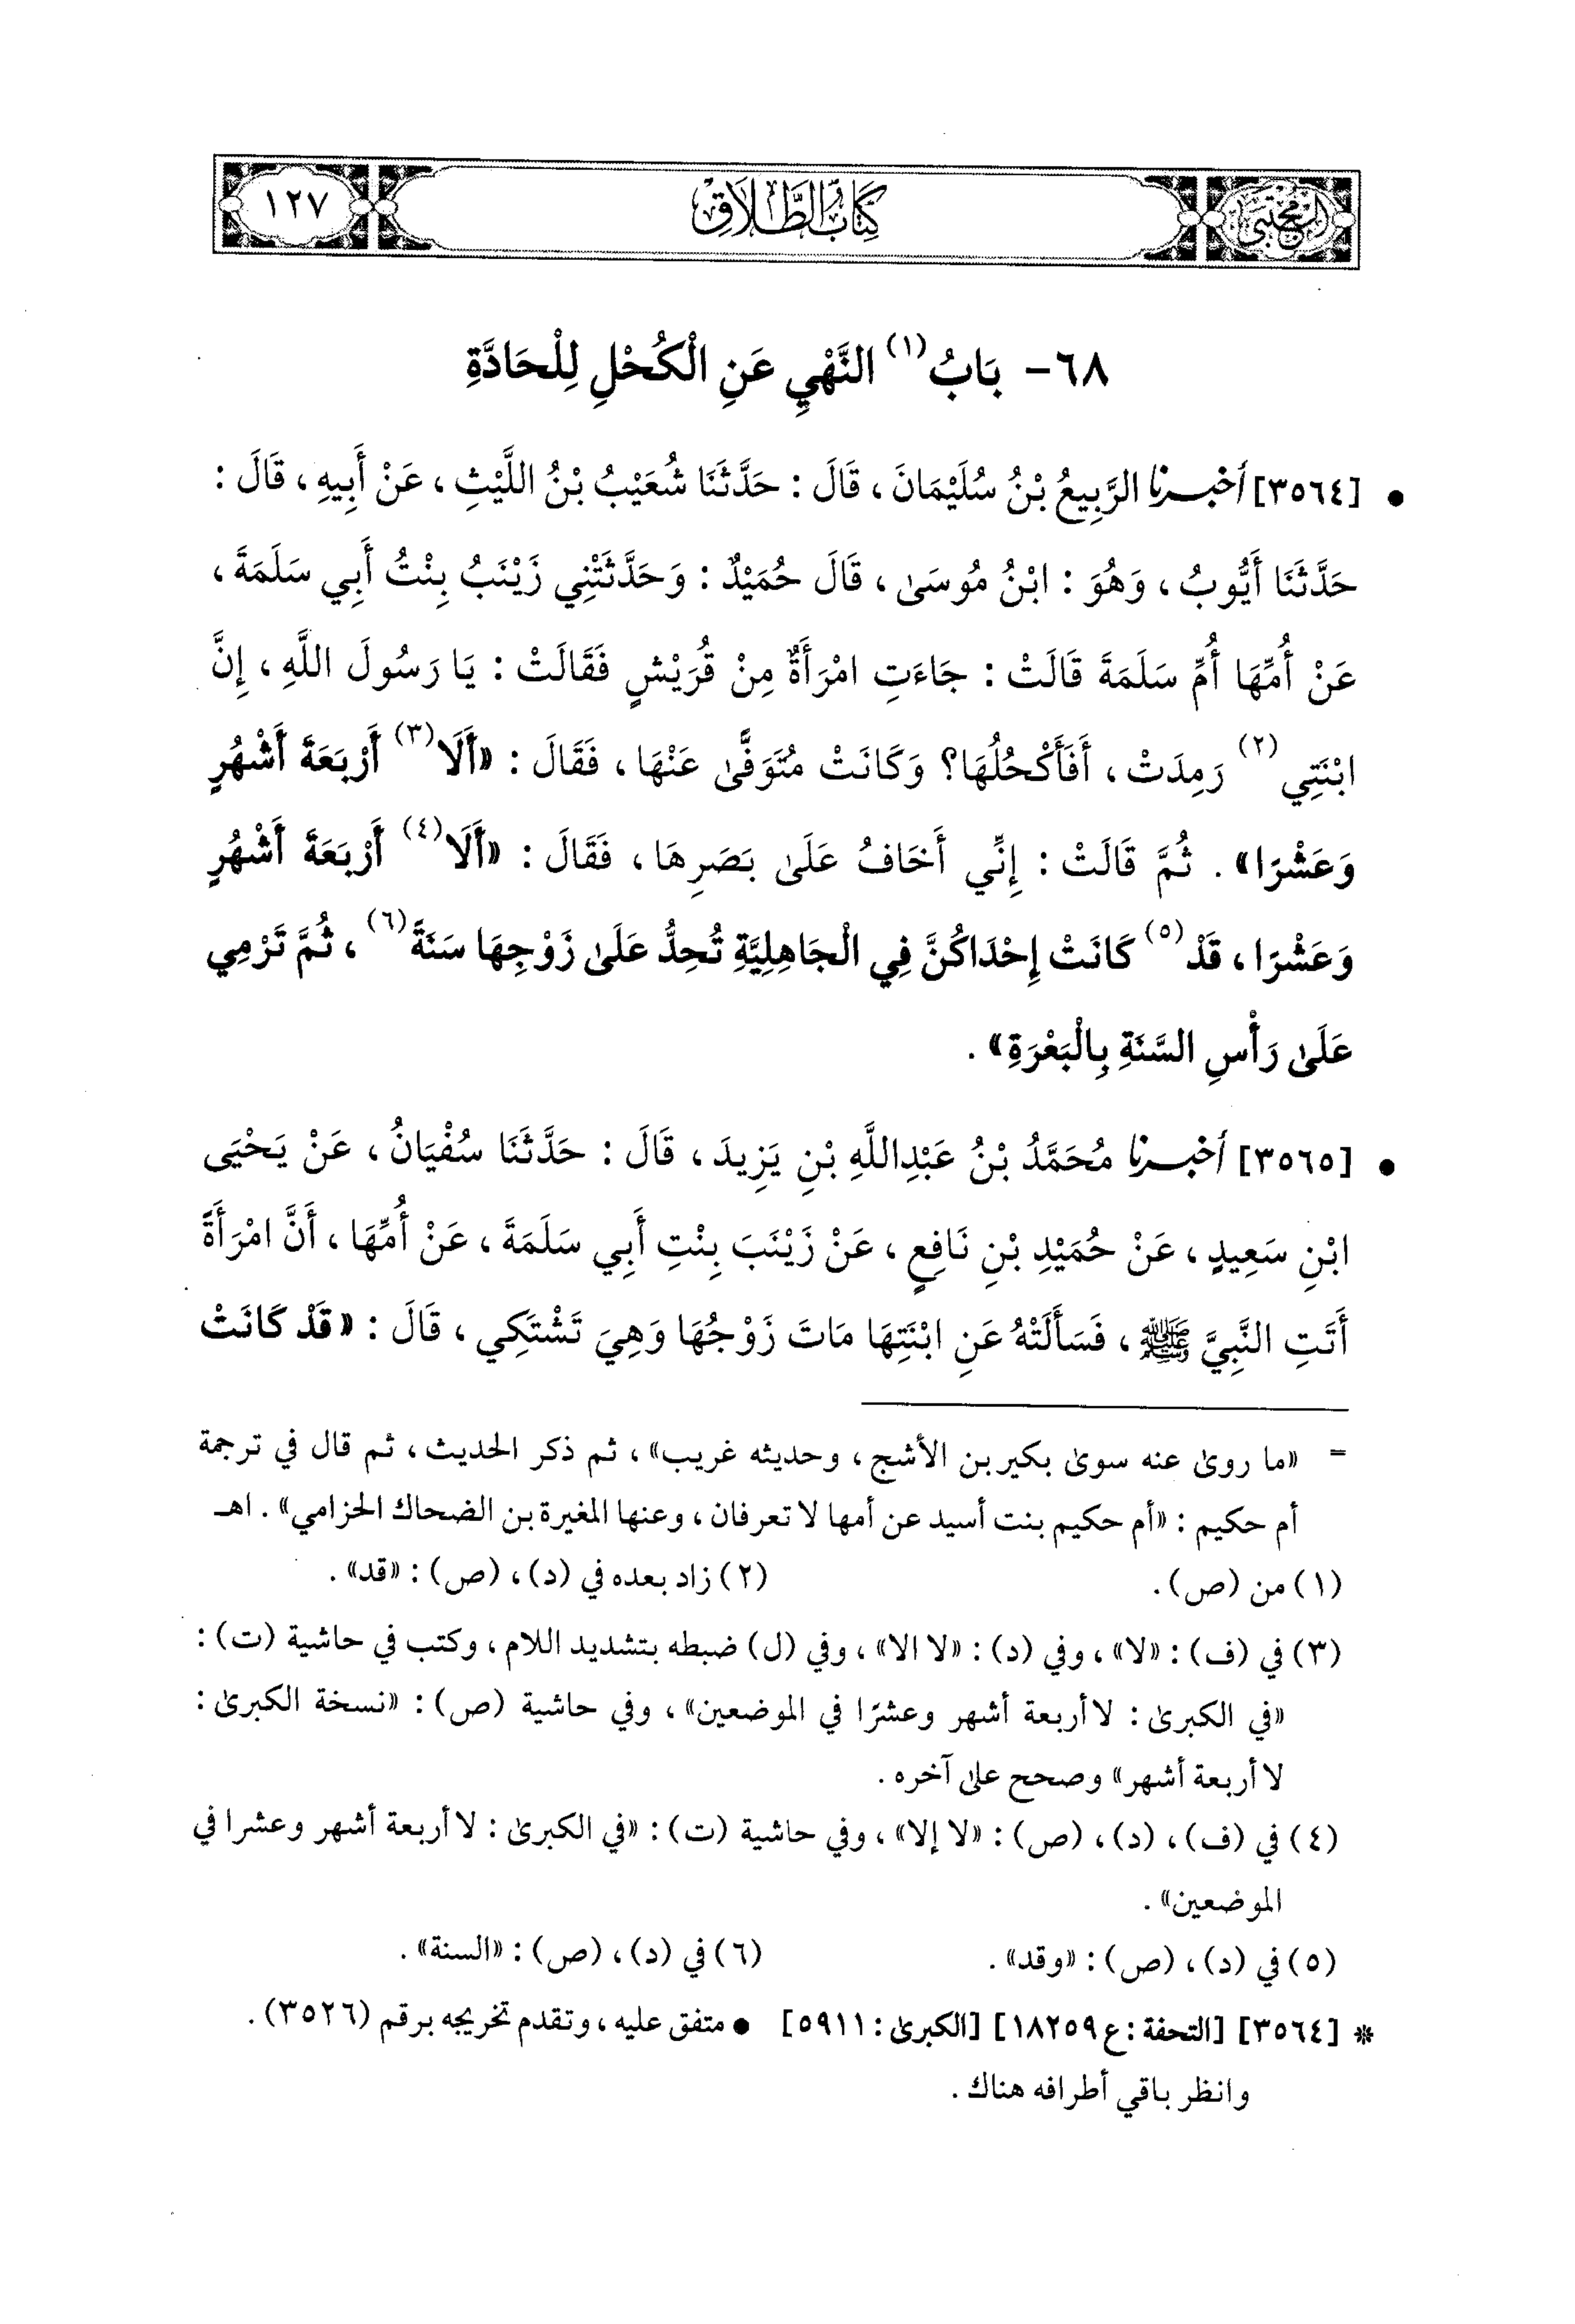 المجتبى
كِتَابُ الطَّلَاقِ
١٢٧
٦٨- بَابُ(١) النَّهْيِ عَنِ الْكُحْلِ لِلْحَادَّةِ
• [٣٥٦٤] أخبرنا الرَّبِيعُ بْنُ سُلَيْمَانَ، قَالَ: حَدَّثَنَا شُعَيْبُ بْنُ اللَّيْثِ، عَنْ أَبِيهِ، قَالَ:
حَدَّثَنَا أَيُّوبُ، وَهُوَ: ابْنُ مُوسَىٰ، قَالَ حُمَيْدٌ: وَحَدَّثَتْنِي زَيْنَبُ بِنْتُ أَبِي سَلَمَةَ،
عَنْ أُمِّهَا أُمِّ سَلَمَةَ قَالَتْ: جَاءَتِ امْرَأَةٌ مِنْ قُرَيْشٍ فَقَالَتْ: يَا رَسُولَ اللَّهِ، إِنَّ
ابْنَتِي(٢) رَمِدَتْ، أَفَأَكْحُلُهَا؟ وَكَانَتْ مُتَوَفًّىٰ عَنْهَا، فَقَالَ: «أَلَا(٣) أَرْبَعَةَ أَشْهُرٍ
وَعَشْرًا». ثُمَّ قَالَتْ: إِنِّي أَخَافُ عَلَىٰ بَصَرِهَا، فَقَالَ: «أَلَا(٤) أَرْبَعَةَ أَشْهُرٍ
وَعَشْرًا، قَدْ(٥) كَانَتْ إِحْدَاكُنَّ فِي الْجَاهِلِيَّةِ تُحِدُّ عَلَىٰ زَوْجِهَا سَنَةً(٦)، ثُمَّ تَرْمِي
عَلَىٰ رَأْسِ السَّنَةِ بِالْبَعْرَةِ».
• [٣٥٦٥] أخبرنا مُحَمَّدُ بْنُ عَبْدِاللَّهِ بْنِ يَزِيدَ، قَالَ: حَدَّثَنَا سُفْيَانُ، عَنْ يَحْيَى
ابْنِ سَعِيدٍ، عَنْ حُمَيْدِ بْنِ نَافِعٍ، عَنْ زَيْنَبَ بِنْتِ أَبِي سَلَمَةَ، عَنْ أُمِّهَا، أَنَّ امْرَأَةً
أَتَتِ النَّبِيَّ ﷺ، فَسَأَلَتْهُ عَنِ ابْنَتِهَا مَاتَ زَوْجُهَا وَهِيَ تَشْتَكِي، قَالَ: «قَدْ كَانَتْ
= «ما روىٰ عنه سوىٰ بكير بن الأشج، وحديثه غريب»، ثم ذكر الحديث، ثم قال في ترجمة
أم حكيم: «أم حكيم بنت أسيد عن أمها لا تعرفان، وعنها المغيرة بن الضحاك الحزامي». اهـ
(١) من (ص). (٢) زاد بعده في (د)، (ص): «قد».
(٣) في (ف): «لا»، وفي (د): «لا الا»، وفي (ل) ضبطه بتشديد اللام، وكتب في حاشية (ت):
«في الكبرىٰ: لا أربعة أشهر وعشرًا في الموضعين»، وفي حاشية (ص): «نسخة الكبرىٰ:
لا أربعة أشهر» وصحح علىٰ آخره.
(٤) في (ف)، (د)، (ص): «لا إلا»، وفي حاشية (ت): «في الكبرىٰ: لا أربعة أشهر وعشرا في
الموضعين».
(٥) في (د)، (ص): «وقد». (٦) في (د)، (ص): «السنة».
* [٣٥٦٤] [التحفة: ع ١٨٢٥٩] [الكبرىٰ: ٥٩١١] • متفق عليه، وتقدم تخريجه برقم (٣٥٢٦).
وانظر باقي أطرافه هناك.